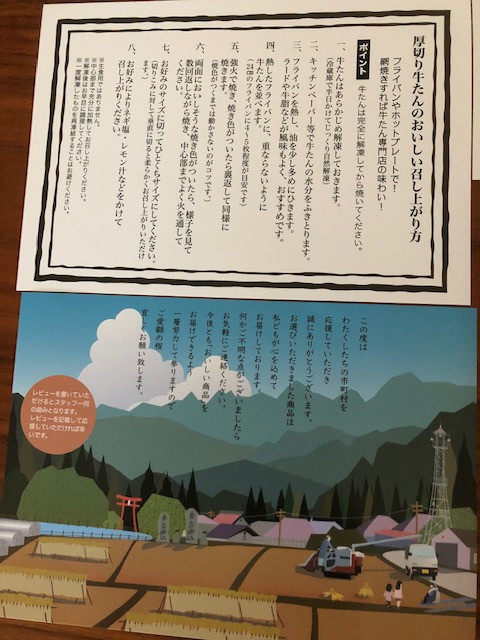 厚切り牛たんのおいしい召し上がり方
フライパンやホットプレートで！
網焼きすれば牛たん専門店の味わい！
ポイント 牛たんは完全に解凍してから焼いてください。
一、牛たんはあらかじめ解凍しておきます。
（冷蔵庫で半日かけてじっくり自然解凍）
二、キッチンペーパー等で牛たんの水分をふきとります。
三、フライパンを熱し、油を少し多めにひきます。
ラードや牛脂などが風味もよく、おすすめです。
四、熱したフライパンに、重ならないように
牛たんを並べます。
（24cmのフライパンに4～5枚程度が目安です）
五、強火で焼き、焼き色がついたら裏返して同様に
焼きます。
（焼色がつくまでは動かさないのがコツです。）
六、両面においしそうな焼き色がついたら、様子を見て
数回返しながら焼き、中心部までよく火を通して
ください。
七、お好みのサイズに切ってひとくちサイズにしてください。
（切りこみに対して垂直に切ると柔らかくお召し上がりいただけ
ます。）
八、お好みによりネギ塩、レモン汁などをかけて
召し上がりください。
※生食用ではありません。
※中心部まで充分に加熱してお召し上がりください。
※解凍後はお早目に調理ください。
※一度解凍したものを再凍結することはお避けください。
この度は
わたくしたちの市町村を
応援していただき
誠にありがとうございます。
お選びいただきました商品は
私どもが心を込めて
お届けしております。
何かご不明な点がございましたら
お気軽にご連絡ください。
今後とも「おいしい商品」を
お届けできるよう
一層努力して参りますので
ご愛顧の程
宜しくお願い致します。
レビューを書いていた
だけるとスタッフ一同
の励みとなります。
レビューを記載して応
援していただければ幸
いです。